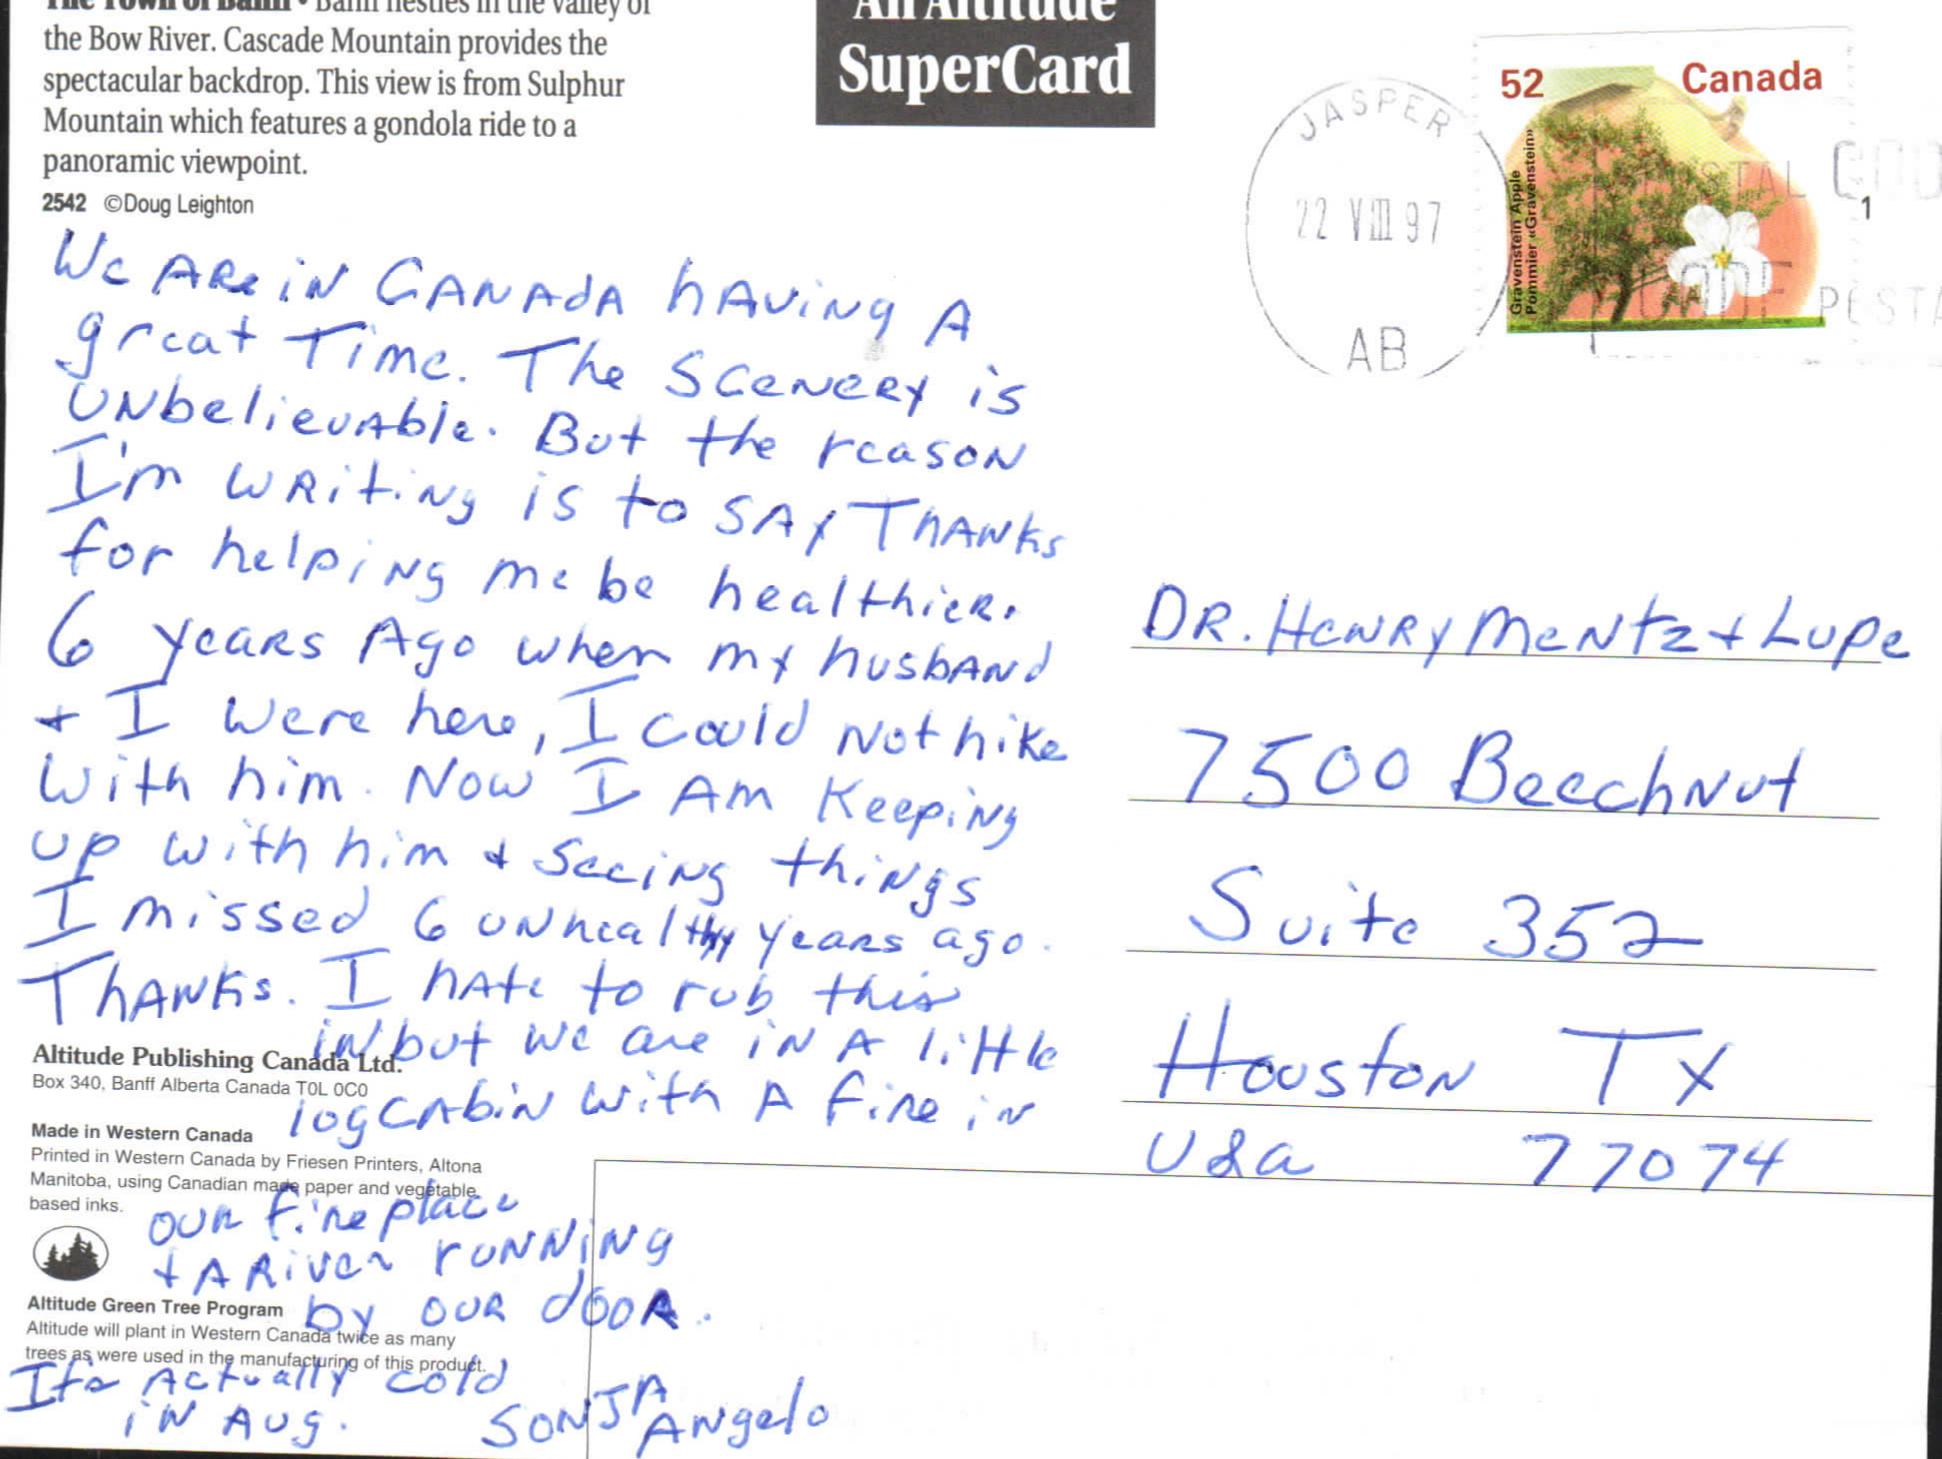 The Town of Banff • Banff nestles in the valley of
the Bow River. Cascade Mountain provides the
spectacular backdrop. This view is from Sulphur
Mountain which features a gondola ride to a
panoramic viewpoint.
2542 ©Doug Leighton
An Altitude
SuperCard
JASPER
22 VIII 97
AB
52 Canada
Gravenstein Apple
Pommier «Gravenstein»
POSTAL
1
CODE POSTA
We Are in CANAdA hAving A
great Time. The Scenery is
UNbelievAble. But the reason
I'm writing is to SAy ThANks
for helping me be healthier.
6 years Ago when my husbANd
+ I were here, I could Not hike
with him. Now I Am Keeping
up with him + Seeing things
I missed 6 UNhealthy years ago.
ThANks. I hAte to rub this
in but we are in A little
log CAbin with A fire in
our fireplace
+ A River rUNNiNg
by our door.
Its Actually cold
iN AUg.
SONJA
ANgelo
DR. HeNRy MeNtz + Lupe
7500 BeechNut
Suite 352
HoustoN Tx
USa 77074
Altitude Publishing Canada Ltd.
Box 340, Banff Alberta Canada T0L 0C0
Made in Western Canada
Printed in Western Canada by Friesen Printers, Altona
Manitoba, using Canadian made paper and vegetable
based inks.
Altitude Green Tree Program
Altitude will plant in Western Canada twice as many
trees as were used in the manufacturing of this product.